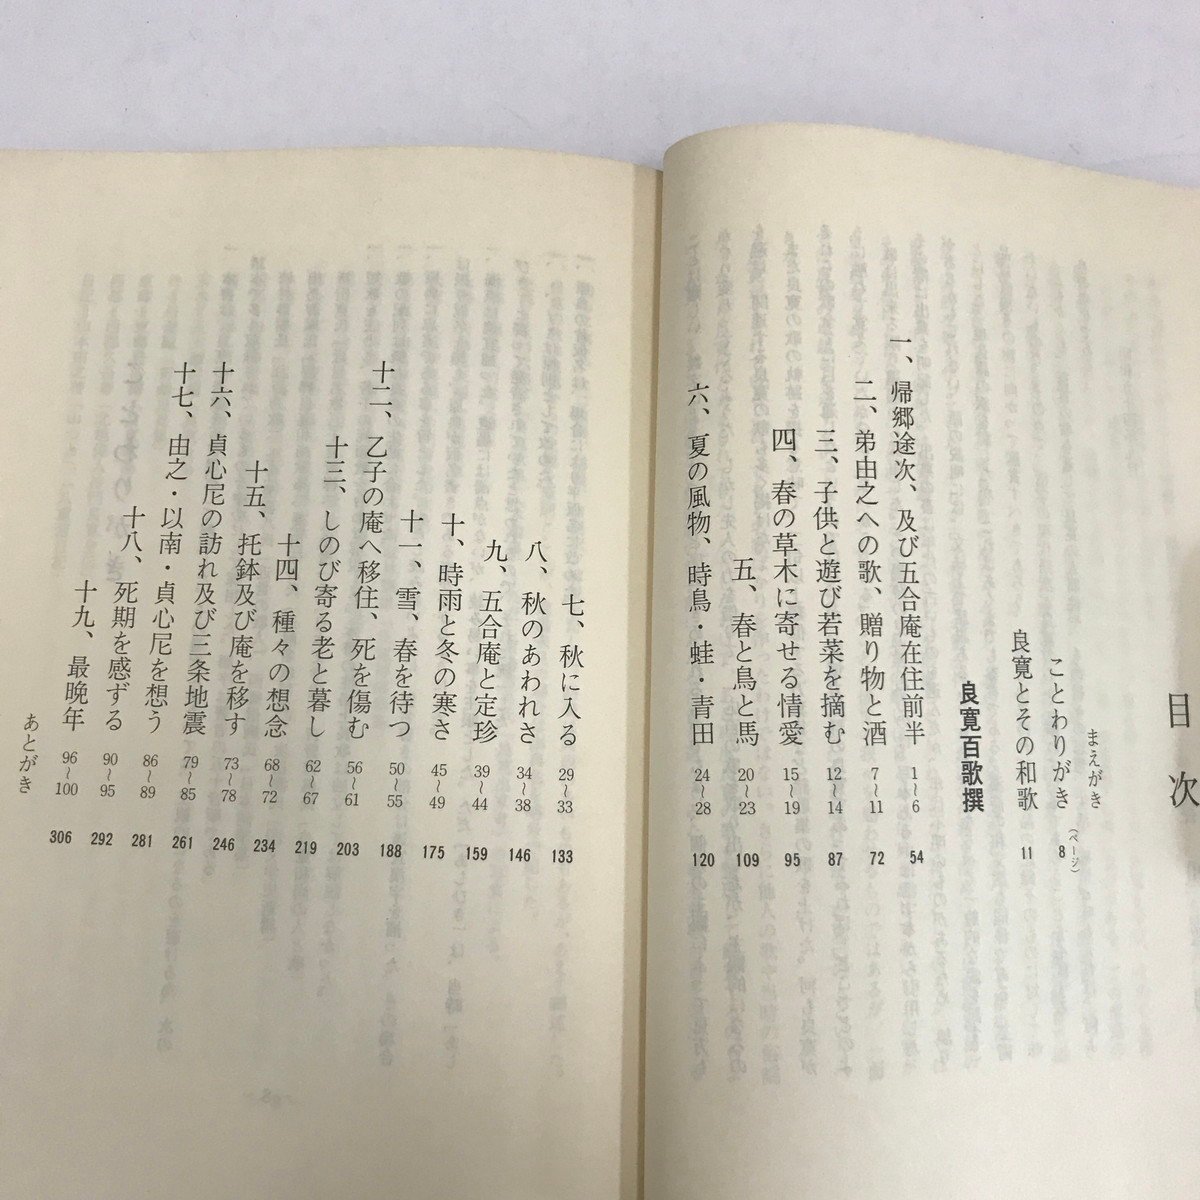 目次
まえがき
ことわりがき 8 (ページ)
良寛とその和歌 11
良寛百歌撰
一、帰郷途次、及び五合庵在住前半 1〜6 54
二、弟由之への歌、贈り物と酒 7〜11 72
三、子供と遊び若菜を摘む 12〜14 87
四、春の草木に寄せる情愛 15〜19 95
五、春と鳥と馬 20〜23 109
六、夏の風物、時鳥・蛙・青田 24〜28 120
七、秋に入る 29〜33 133
八、秋のあわれさ 34〜38 146
九、五合庵と定珍 39〜44 159
十、時雨と冬の寒さ 45〜49 175
十一、雪、春を待つ 50〜55 188
十二、乙子の庵へ移住、死を傷む 56〜61 203
十三、しのび寄る老と暮し 62〜67 219
十四、種々の想念 68〜72 234
十五、托鉢及び庵を移す 73〜78 246
十六、貞心尼の訪れ及び三条地震 79〜85 261
十七、由之・以南・貞心尼を想う 86〜89 281
十八、死期を感ずる 90〜95 292
十九、最晩年 96〜100 306
あとがき